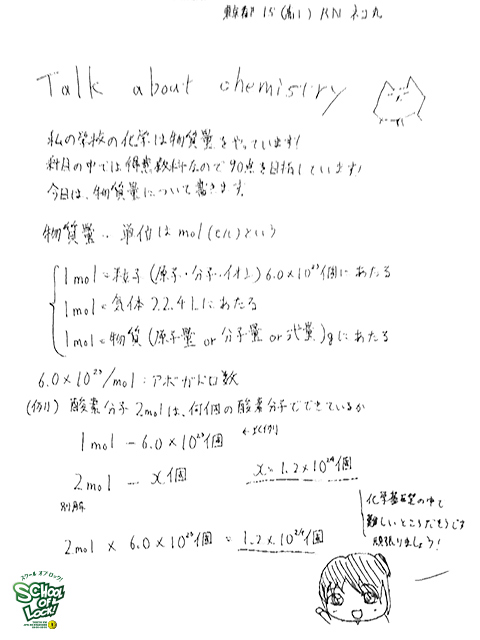 東京都 15(高1) RN ネコ丸
Talk about chemistry
私の学校の化学は物質量をやっています!
科目の中では得意教科なので90点を目指しています!
今日は、物質量について書きます。
物質量… 単位はmol(モル)という
1mol=粒子(原子・分子・イオン)6.0×10²³個にあたる
1mol=気体 22.4Lにあたる
1mol=物質(原子量 or 分子量 or 式量)gにあたる
6.0×10²³/mol:アボガドロ数
(例) 酸素分子 2molは、何個の酸素分子でできているか
1mol — 6.0×10²³個 ←比例
2mol — x個 x=1.2×10²⁴個
別解
2mol × 6.0×10²³個 = 1.2×10²⁴個
化学基礎の中で
難しいところだそうです
頑張りましょう!
スクールオブロック!
SCHOOL
OF
LOCK!